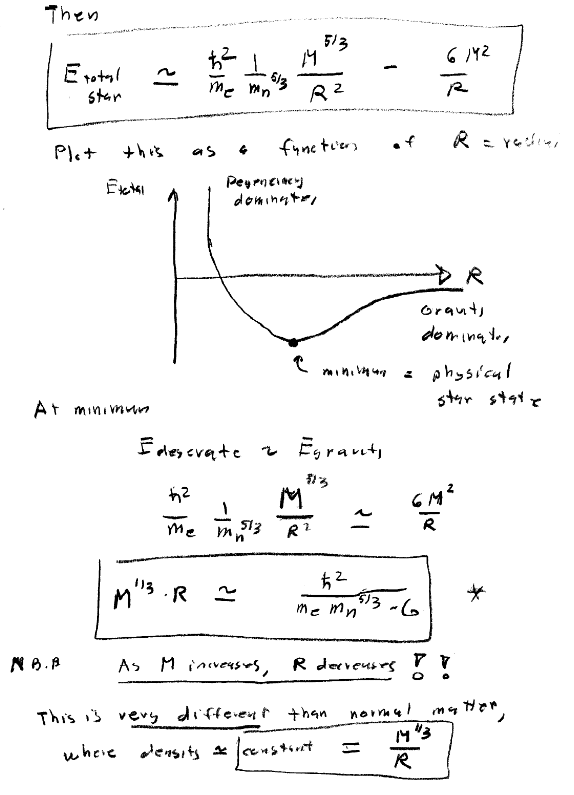 Then
E total star ≃ ħ²/mₑ 1/mₙ^5/3 M^5/3/R² - GM²/R
Plot this as a function of R = radius
Etotal
Degeneracy dominates
R
Gravity dominates
minimum = physical star state
At minimum
Edegenerate ~ Egravity
ħ²/mₑ 1/mₙ^5/3 M^5/3/R² ≃ GM²/R
M^1/3 · R ≃ ħ²/mₑ mₙ^5/3 · G *
N.B.B As M increases, R decreases !!
This is very different than normal matter,
where density ≈ constant = M^1/3/R